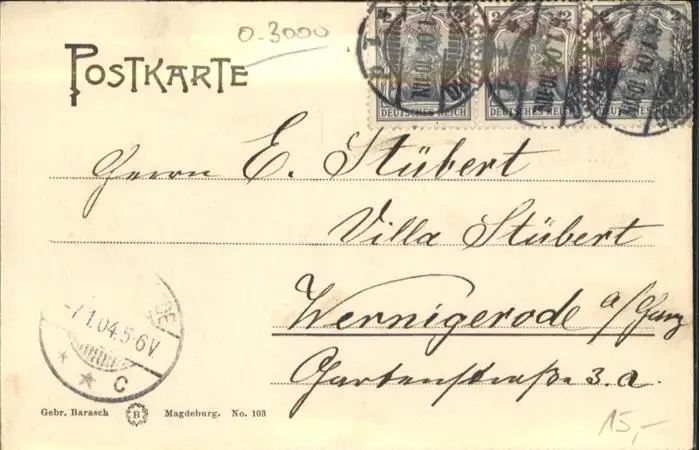 0.3000
POSTKARTE
2 2 2 2
DEUTSCHES REICH DEUTSCHES REICH DEUTSCHES REICH
Herrn E. Stübert
Villa Stübert
Wernigerode a/Harz
Gartenstraße 3.a.
-7 1.04.5-6V
* * C
Gebr. Barasch B Magdeburg. No. 103
15,-